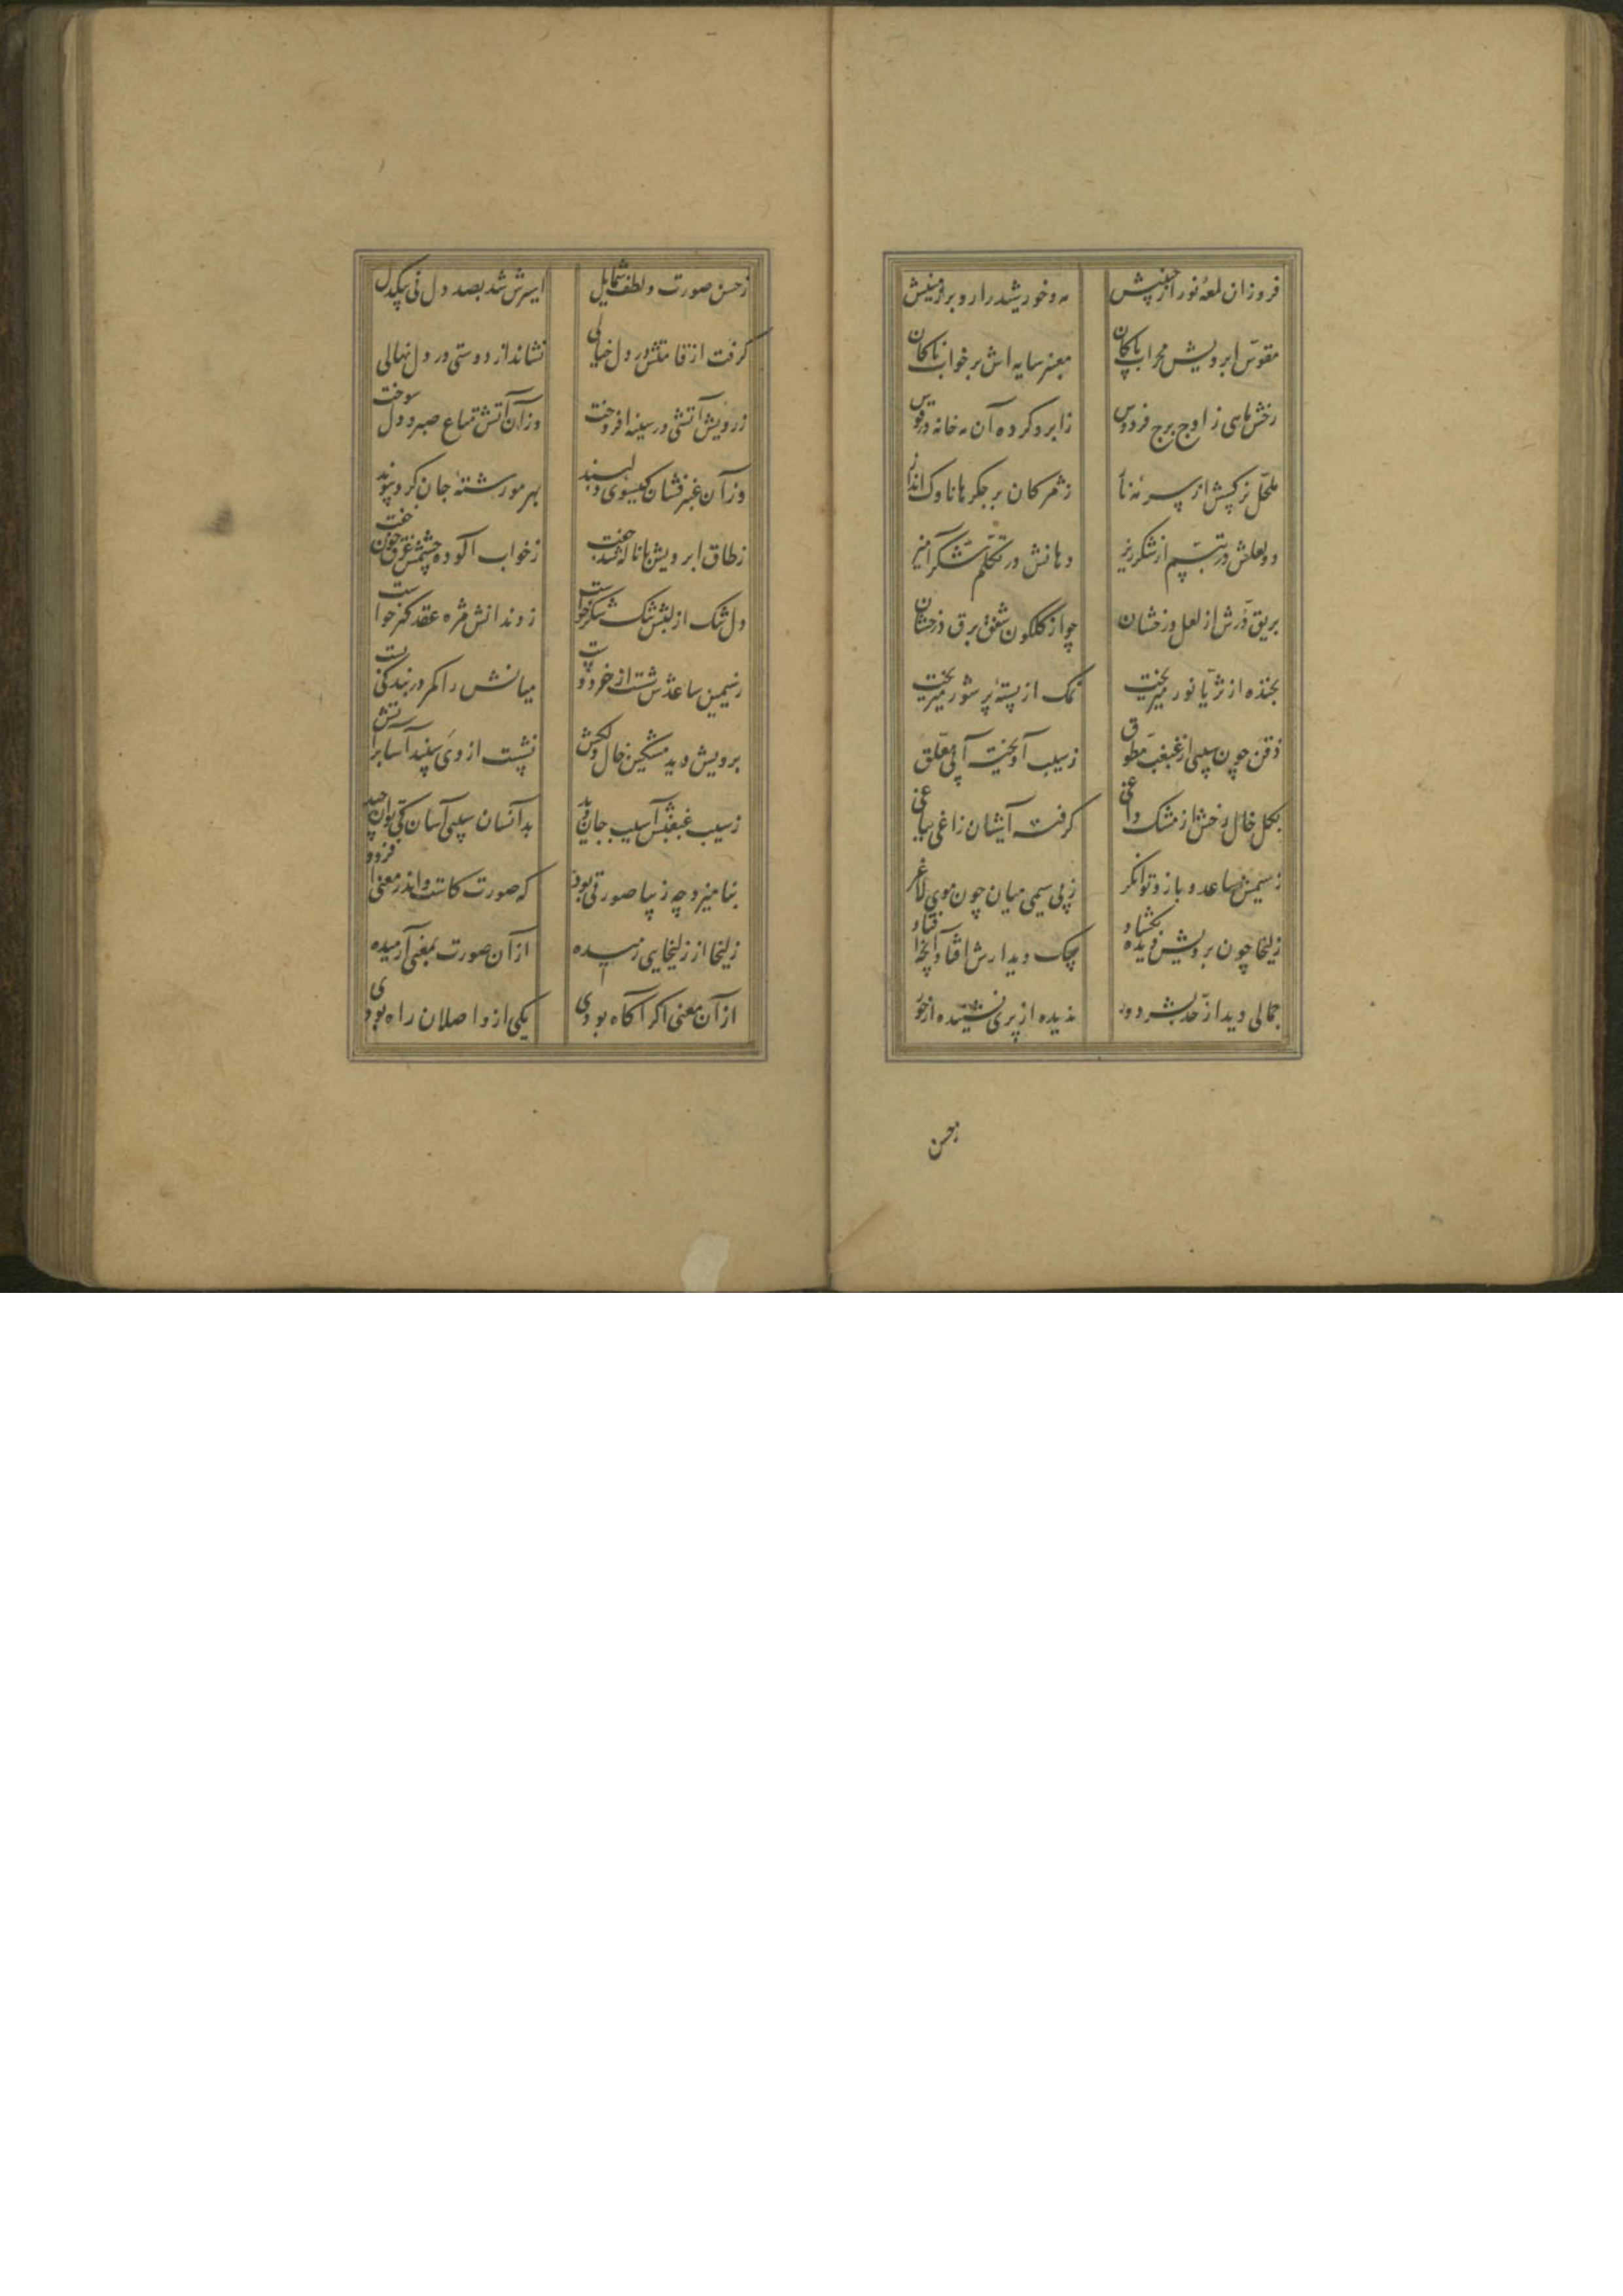 فروزان لمعهٔ نور از جبینش مه و خورشید را رو بر زمینش
مقوس ابرویش محراب پاکان معنبر سایه‌اش بر خوابناکان
رخش ماهی ز اوج برج فردوس ز ابرو کرده آن مه خانه در قوس
مکحل نرکسش از سرمهٔ ناز ز مژکان بر جکرها ناوک انداز
دو لعلش در تبسم از شکرریز دهانش در تکلم شکرآمیز
بریق درش از لعل درخشان چو از کلکون شفق برق درخشان
بخنده از ثریا نور میریخت نمک از پستهٔ پر شور میریخت
ذقن چون سیبی از غبغب مطوق ز سیب آویخته آبی معلق
بکل خال رخش از مشک داغی کرفته آشیان زاغی بباغی
ز سیمش ساعد و بازو توانکر ز بی سیمی میان چون موی لاغر
زلیخا چون برویش دیده بکشاد بیک دیدارش افتاد آنچه افتاد
جمالی دید از حد بشر دور ندیده از پری نشنیده از حور
زحسن
ز حسن صورت و لطف شمایل اسیرش شد بصد دل نی بیکدل
کرفت از قامتش در دل خیالی نشاند از دوستی در دل نهالی
ز رویش آتشی در سینه افروخت وزان آتش متاع صبر و دل سوخت
وز آن عنبرفشان کیسوی دلبند بهر مو رشتهٔ جان کرد پیوند
ز طاق ابرویش با ناله شد جفت ز خواب آلوده چشمش غرق خون خفت
دل تنک از لبش تنک شکر خواست ز دندانش مژه عقد کهر خواست
ز سیمین ساعدش شست از خرد دست میانش را کمر در بندکی بست
برویش دید مشکین خال دلکش نشست از وی سپندآسا بر آتش
ز سیب غبغبش آسیب جان دید بدآنسان سیبی آسان کی توان چید
بنامیزد چه زیبا صورتی بود که صورت کاست واندر معنی افزود
زلیخا از زلیخایی رمیده از آن صورت بمعنی آرمیده
از آن معنی اکر آکاه بودی یکی از واصلان راه بودی